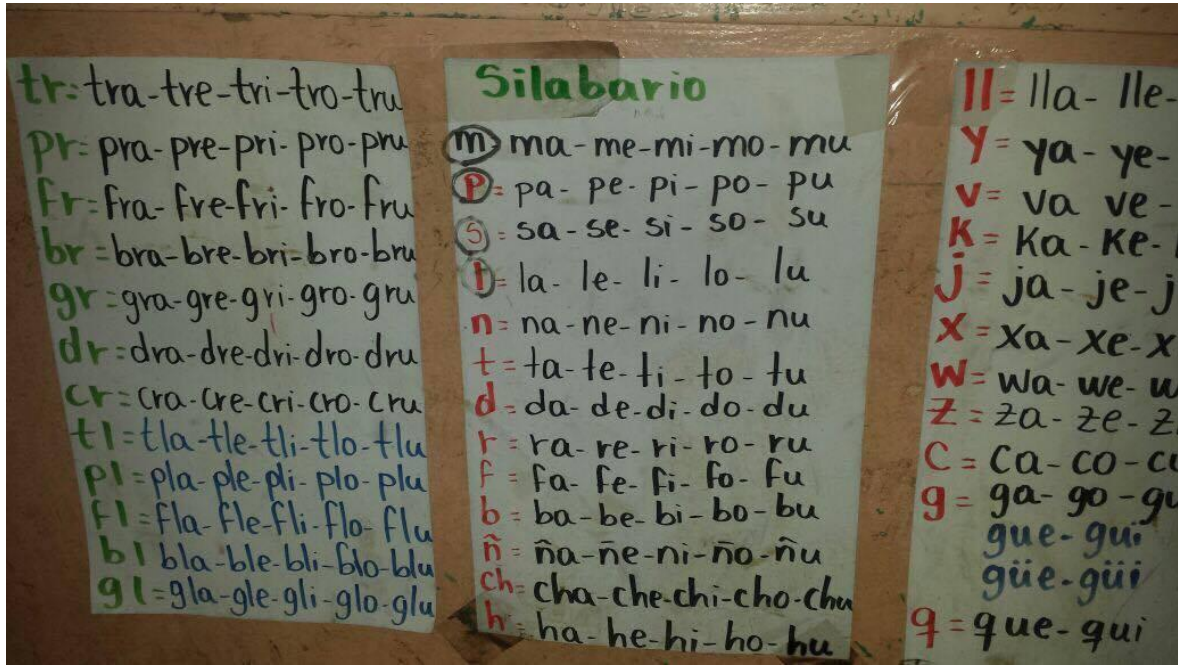 tr=tra-tre-tri-tro-tru
pr=pra-pre-pri-pro-pru
fr=fra-fre-fri-fro-fru
br=bra-bre-bri-bro-bru
gr=gra-gre-gri-gro-gru
dr=dra-dre-dri-dro-dru
cr=cra-cre-cri-cro-cru
tl=tla-tle-tli-tlo-tlu
pl=pla-ple-pli-plo-plu
fl=fla-fle-fli-flo-flu
bl bla-ble-bli-blo-blu
gl=gla-gle-gli-glo-glu
Silabario
m ma-me-mi-mo-mu
p=pa-pe-pi-po-pu
s=sa-se-si-so-su
l=la-le-li-lo-lu
n=na-ne-ni-no-nu
t=ta-te-ti-to-tu
d=da-de-di-do-du
r=ra-re-ri-ro-ru
f=fa-fe-fi-fo-fu
b=ba-be-bi-bo-bu
ñ=ña-ñe-ni-ño-ñu
ch=cha-che-chi-cho-chu
h=ha-he-hi-ho-hu
ll=lla-lle-
y=ya-ye-
v=va ve-
K=Ka-Ke-
j=ja-je-j
x=xa-xe-x
w=wa-we-w
z=za-ze-z
C=ca-co-cu
g=ga-go-gu
gue-gui
güe-güi
q=que-qui